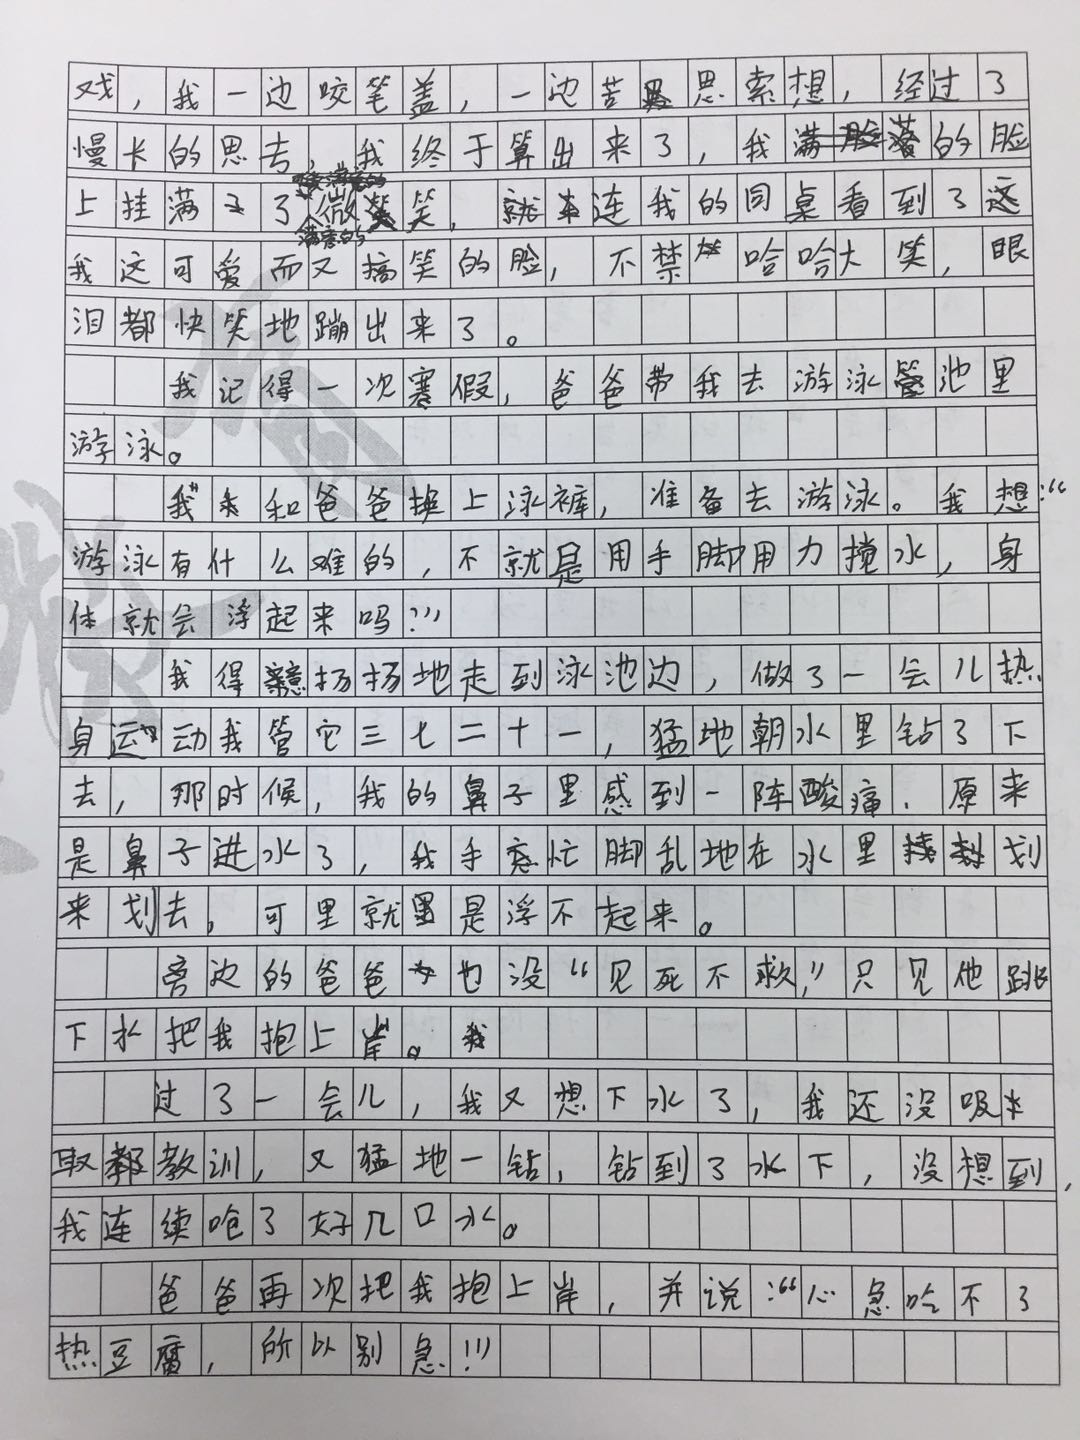 戏，我一边咬笔盖，一边苦思索想，经过了
慢卡的思去 我终于算出来了，我的脸
上挂满了满意的微笑，就连我的同桌看到了
我这可爱而又搞笑的脸，不禁哈哈大笑，眼
泪都快笑地蹦出来了。
我记得一次寒假，爸爸带我去游泳池里
游泳。
我和爸爸换上泳裤，准备去游泳。我想：“
游泳有什么难的，不就是用手脚用力撓水，身
体就会浮起来吗？”
我得意扬扬地走到泳池边，做了一会儿热
身运动我管它三七二十一，猛地朝水里钻了下
去，那时候，我的鼻子里感到一阵酸痛．原来
是鼻子进水了，我手忙脚乱地在水里划
来划去，可里就是浮不起来。
旁边的爸爸也没“见死不救，”只见他跳
下水把我抱上岸。
过了一会儿，我又想下水了，我还没吸
取教训，又猛地一钻，钻到了水下，没想到，
我连续呛了好几口水。
爸爸再次把我抱上岸，并说：“心急吃不了
热豆腐，所以别急！”